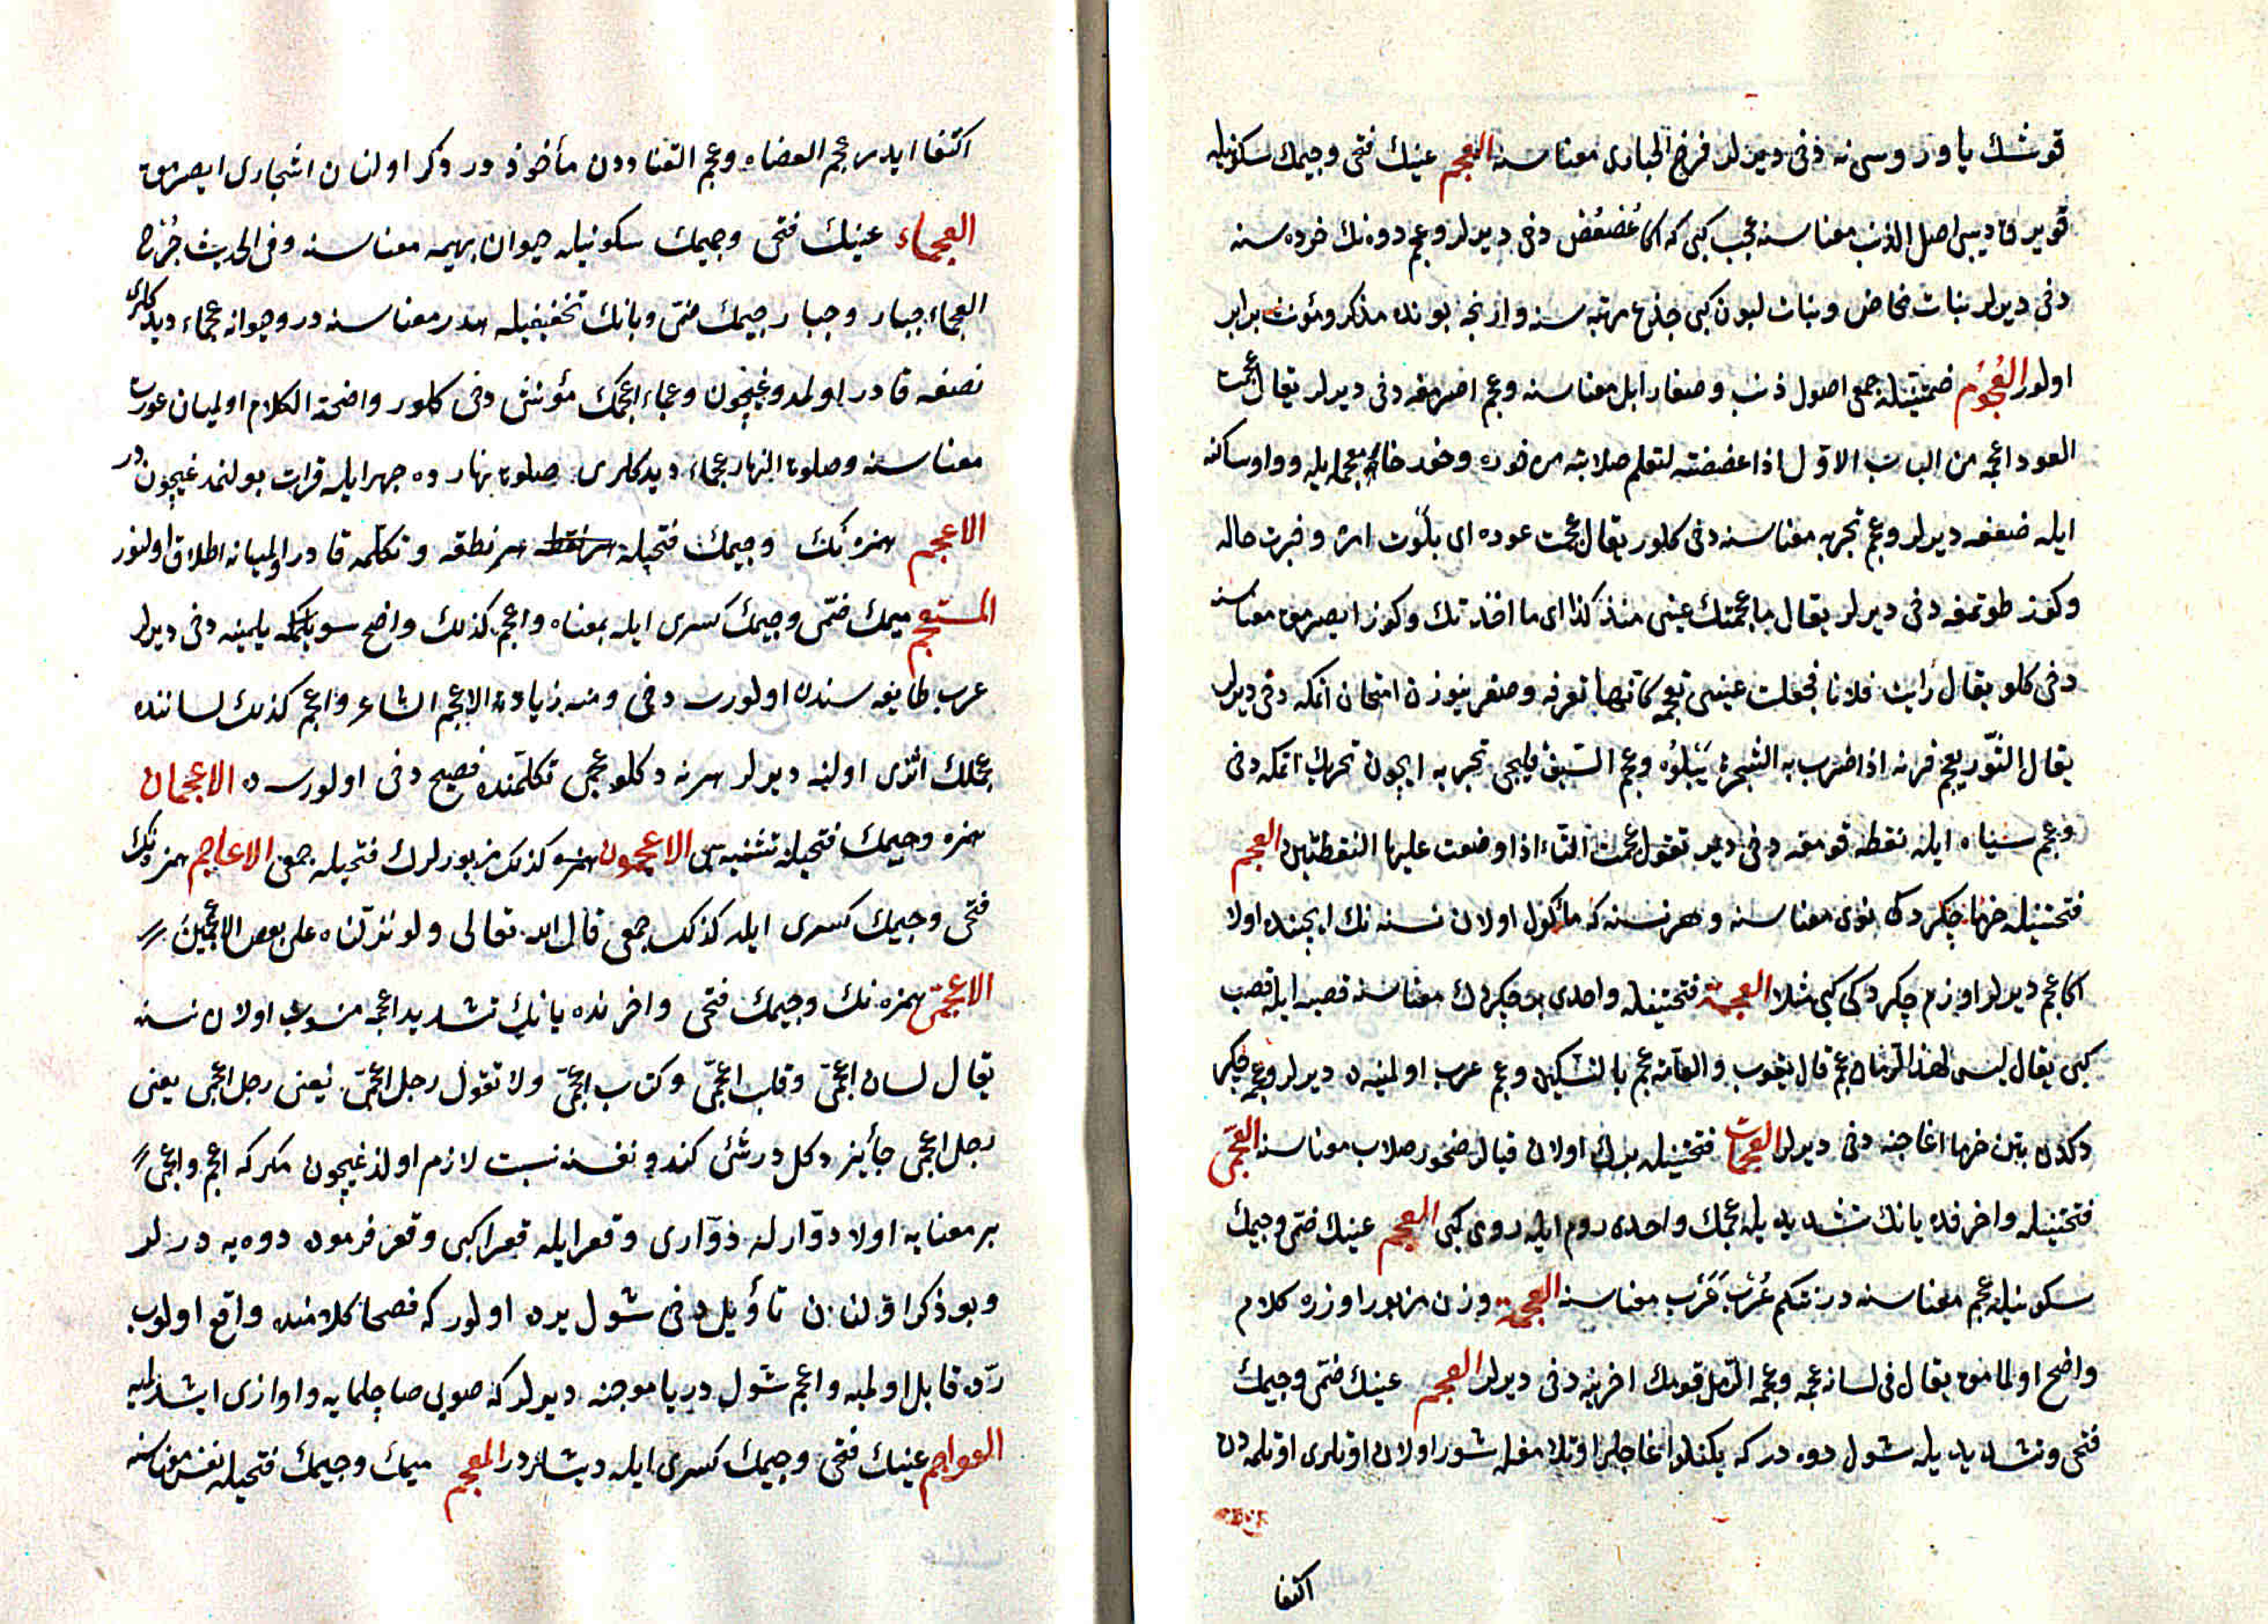 قوشك ياوروسی نه دخی ديرلر فرخ الحباری معناسنه العجم عينك فتحی وجيمك سكونيله
قويرقا ديبی اصل الذنب معناسنه عجب كبی كه اكا عُضعُض دخی ديرلر وعجم دوه نك خرده سنه
دخی ديرلر بنات مخاض وبنات لبون كبی جذع مرتبه سنه وارنجه بونده مذكر ومؤنث برابر
اولور العُجُوم ضمتينله جمعی اصول ذنب وصغار ابل معناسنه وعجم اصرمغه دخی ديرلر يقال عجمت
العود اعجمه من الباب الاوّل اذا عضضته لتعلم صلابته من خوره وخور خاء معجمه ايله وواو ساكنه
ايله ضعفه ديرلر وعجم تجربه معناسنه دخی كلور يقال عجمت عوده ای بلوت امره وخبرت حاله
وكوز طوتمغه دخی ديرلر يقال ما عجمتك عينی منذ كذا ای ما اخذتك وكوز ايصرمق معناسنه
دخی كلور يقال رأيت فلانا فجعلت عينی تعجمه كانها تعرفه وصغر بينوزن امتحان اتمكه دخی ديرلر
يقال الثّور يعجم قرنه اذا ضرب به الشجرة يَبلُوه وعجم السّيف قليجی تجربه ايچون تحريك اتمكه دخی
وعجم سياه ايله نقطه قومغه دخی ديرلر تقول عجمت التاء اذا وضعت عليها النقطتين العجم
فتحتينله خرما چكردكی نوی معناسنه وهر نسنه كه مأكول اولان نسنه نك ايچنده اولا
اكا عجم ديرلر اوزم چكردكی كبی مثلا العجمة فتحتينله واحدی بر چكردك معناسنه قصبه ايله قصب
كبی يقال ليس لهذا الرمان عجم قال يعقوب والعامّة عجم بالتسكين وعجم عرب اولمينه ديرلر وعجمه چكر
دكدن بتن خرما اغاجنه دخی ديرلر العجمات فتحتينله برك اولان قيالر صخور صلاب معناسنه العجمی
فتحتينله واخرنده يانك تشديديله عجمك واحدی روم ايله رومی كبی العجم عينك ضمّی وجيمك
سكونيله عجم معناسنه در نتكم عُرْب عَرَب معناسنه العجمة وزن مزبور اوزره كلام
واضح اولمامق يقال فی لسانه عجمه وعجمه الرّمل قومك اخرينه دخی ديرلر العجم عينك ضمّی وجيمك
فتحی وتشديديله شول دوه دركه يكنلو اغاجلر اوتلامغله شور اولان اوتلری اوتلمه دن
اكتفا
اكتفا ايدر عجم العضاه وعجم القتاددن مأخوذ در ذكر اولنان اشجاری ايصرمق
العجماء عينك فتحی وجيمك سكونيله حيوان بهيمه معناسنه وفی الحديث جُرْح
العجماء جبار وجبار جيمك ضمّی وبانك تخفيفيله هدر معناسنه در وحيوانه عجماء ديدكلری
نصفه قادر اولمدوغيچون وعجماء اعجمك مؤنثی دخی كلور واضحة الكلام اولميان عورت
معناسنه وصلوة النهار عجماء ديدكلری صلوة نهارده جهر ايله قرات بولنمدغيچون در
الاعجم همزه نك وجيمك فتحيله هر نطقه وتكلمه قادر اولميانه اطلاق اولنور
المستعجم ميمك ضمّی وجيمك كسری ايله بمعناه واعجم كذلك واضح سويلمكه يلمينه دخی ديرلر
عرب طايفه سنده اولورسه دخی ومنه زيادة الاعجم الشاعر واعجم كذلك لساننده
عجملك اثری اولنه ديرلر هر نه دكلو عجمی تكلمنده فصيح دخی اولورسه الاعجمان
همزه وجيمك فتحيله تثنيه سی الاعجمون همزه كذلك مزبورلرك فتحيله جمعی الاعاجم همزه نك
فتحی وجيمك كسری ايله كذلك جمعی قال الله تعالی ولو نزّلناه علی بعض الاعجمين
الاعجمی همزه نك وجيمك فتحی واخرنده يانك تشديديله عجمه منسوب اولان نسنه
يقال لسان اعجمیّ وقلب اعجمیّ وكتاب اعجمیّ ولا تقول رجل اعجمیّ يعنی رجل اعجمی يعنی
رجل اعجمی جائز دكلدر شئ كندو نفسنه نسبت لازم اولدغيچون مكر كه اعجم واعجمی
بر معنايه اولا دوّار له دوّاری وقعسر ايله قعسری كبی وقعسر فرمون دوه يه ديرلر
وبو ذكر اولنان تأويل دخی شول يرده اولور كه فصحا كلامنده واقع اولوب
ردّه قابل اولميه واعجم شول دريا موجنه ديرلر كه صويی صاچلمايه واوازی اشدلميه
العواجم عينك فتحی وجيمك كسری ايله ديشلردر المعجم ميمك وجيمك فتحيله نفس معناسنه